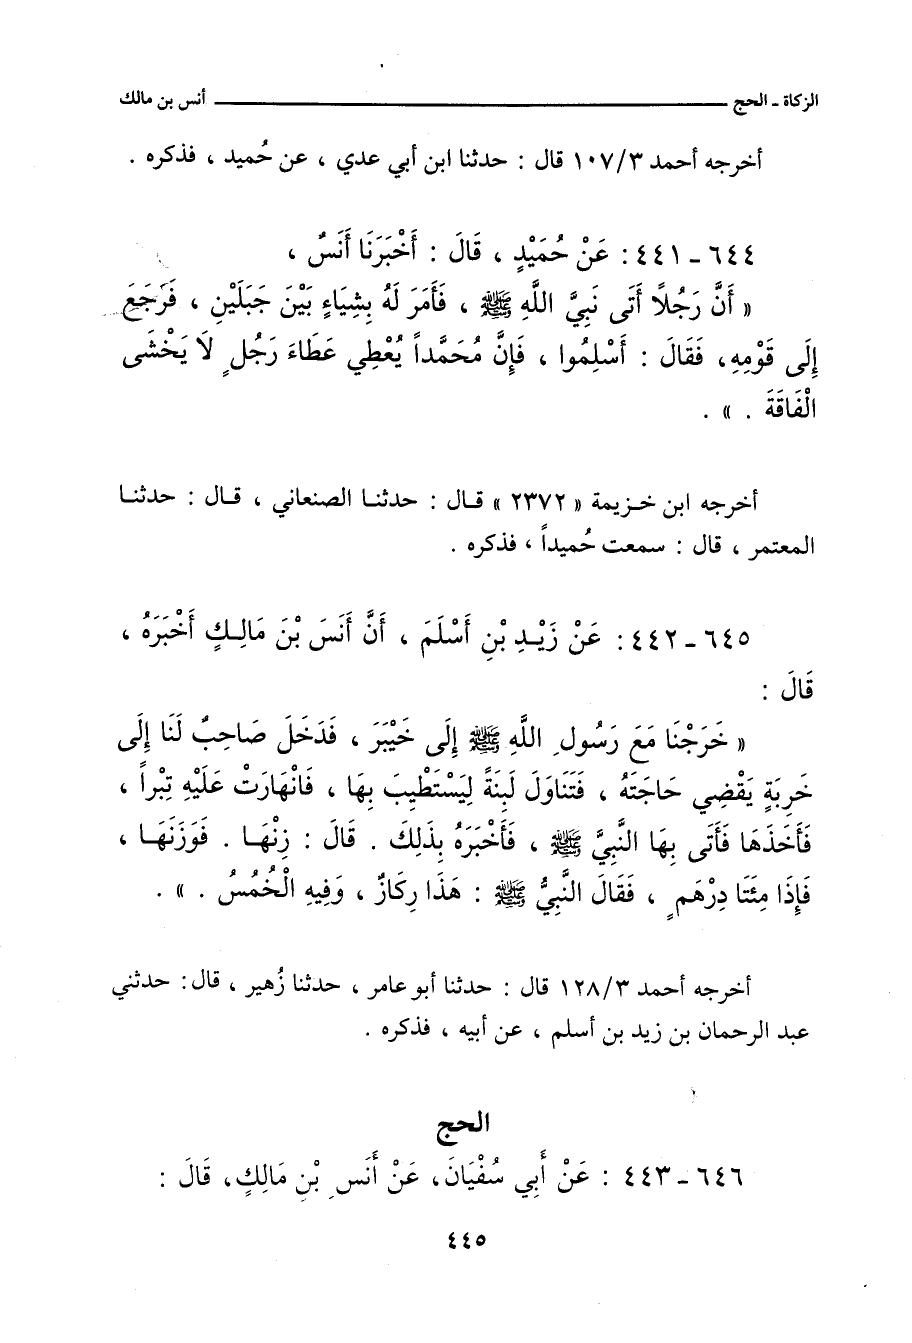 الزكاة ـ الحج ــــــــــــــــــــــــــــــــــــــــــــ أنس بن مالك
أخرجه أحمد ١٠٧/٣ قال : حدثنا ابن أبي عدي ، عن حُميد ، فذكره .
٦٤٤ ـ ٤٤١ : عَنْ حُمَيْدٍ ، قَالَ : أَخْبَرَنَا أَنَسٌ ،
« أَنَّ رَجُلاً أَتَى نَبِيَّ اللَّهِ ﷺ ، فَأَمَرَ لَهُ بِشِيَاءٍ بَيْنَ جَبَلَيْنِ ، فَرَجَعَ
إِلَى قَوْمِهِ، فَقَالَ : أَسْلِمُوا ، فَإِنَّ مُحَمَّداً يُعْطِي عَطَاءَ رَجُلٍ لَا يَخْشَى
الْفَاقَةَ . » .
أخرجه ابن خزيمة « ٢٣٧٢ » قال : حدثنا الصنعاني ، قال : حدثنا
المعتمر ، قال : سمعت حُميداً ، فذكره .
٦٤٥ ـ ٤٤٢ : عَنْ زَيْدِ بْنِ أَسْلَمَ ، أَنَّ أَنَسَ بْنَ مَالِكٍ أَخْبَرَهُ ،
قَالَ :
« خَرَجْنَا مَعَ رَسُولِ اللَّهِ ﷺ إِلَى خَيْبَرَ ، فَدَخَلَ صَاحِبٌ لَنَا إِلَى
خَرِبَةٍ يَقْضِي حَاجَتَهُ ، فَتَنَاوَلَ لَبِنَةً لِيَسْتَطِيبَ بِهَا ، فَانْهَارَتْ عَلَيْهِ تِبْراً ،
فَأَخَذَهَا فَأَتَى بِهَا النَّبِيَّ ﷺ ، فَأَخْبَرَهُ بِذَلِكَ . قَالَ : زِنْهَا . فَوَزَنَهَا ،
فَإِذَا مِئَتَا دِرْهَمٍ ، فَقَالَ النَّبِيُّ ﷺ : هَذَا رِكَازٌ ، وَفِيهِ الْخُمُسُ . » .
أخرجه أحمد ١٢٨/٣ قال : حدثنا أبو عامر ، حدثنا زُهير ، قال : حدثني
عبد الرحمان بن زيد بن أسلم ، عن أبيه ، فذكره .
الحج
٦٤٦ ـ ٤٤٣ : عَنْ أَبِي سُفْيَانَ، عَنْ أَنَسِ بْنِ مَالِكٍ، قَالَ :
٤٤٥